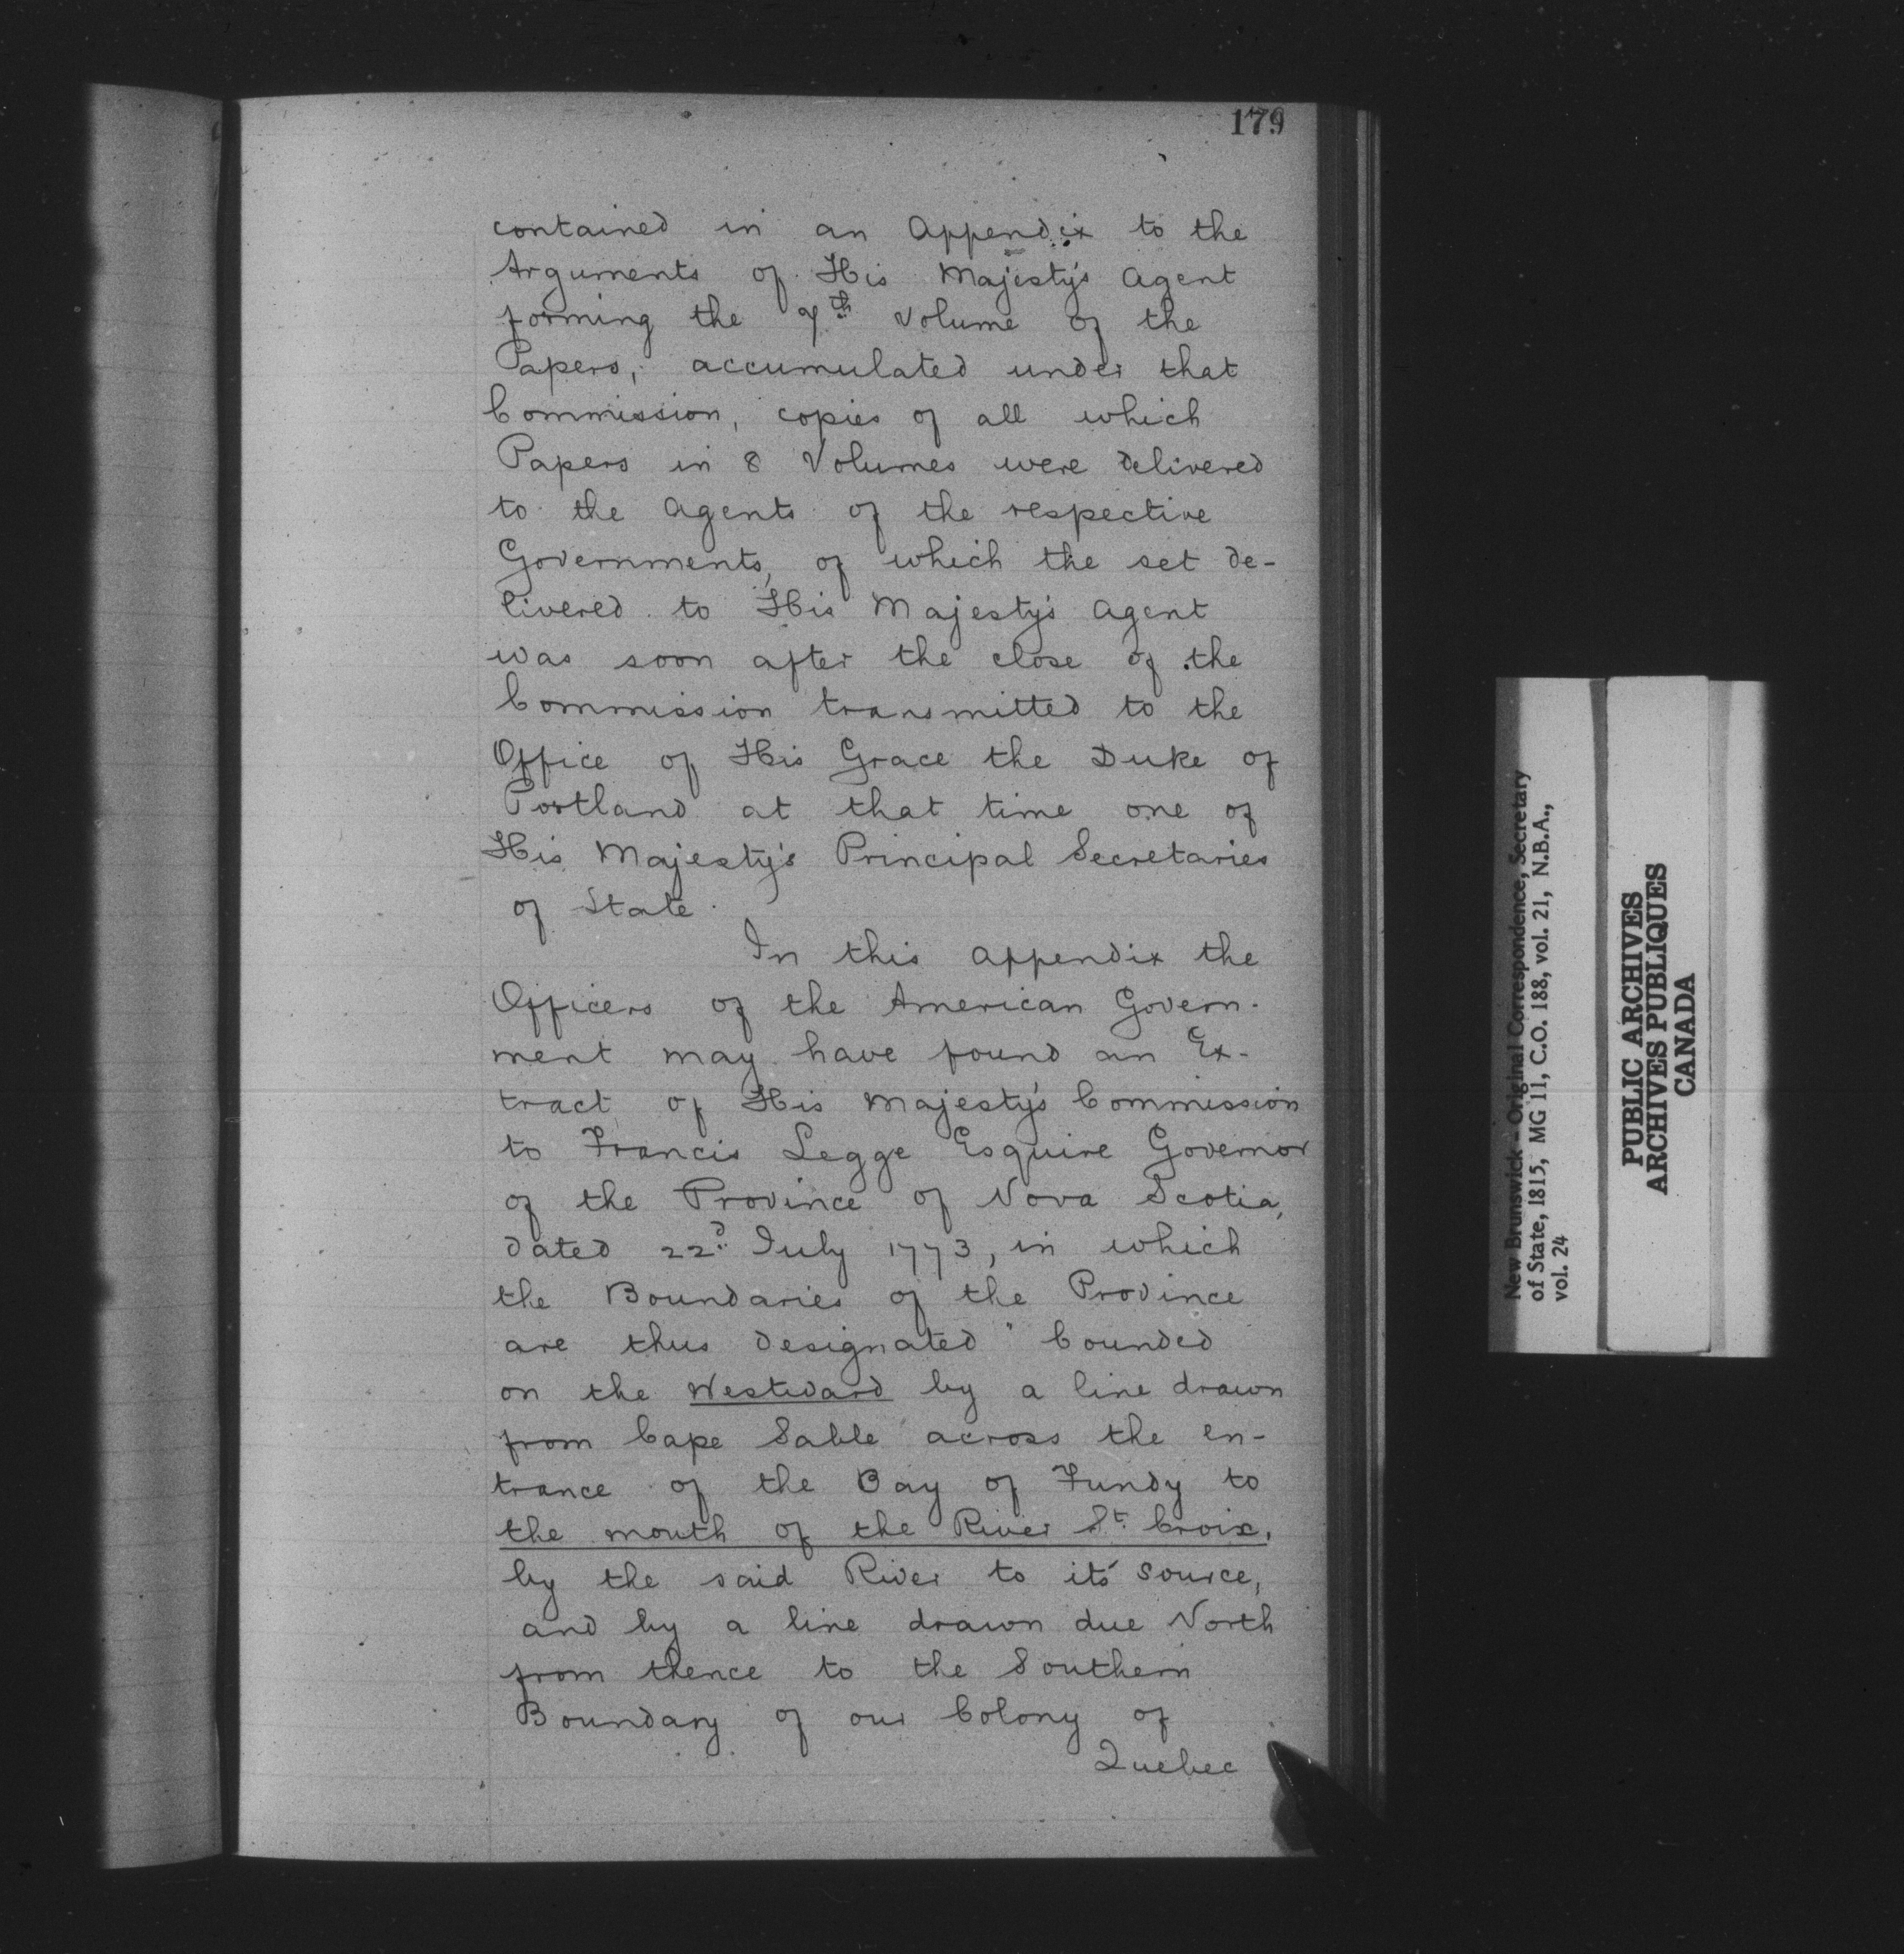 179
contained in an Appendix to the
Arguments of His Majesty's Agent
forming the 7th Volume of the
Papers, accumulated under that
Commission, copies of all which
Papers in 8 Volumes were delivered
to the Agents of the respective
Governments, of which the set de-
livered to His Majesty's Agent
was soon after the close of the
Commission transmitted to the
Office of His Grace the Duke of
Portland at that time one of
His Majesty's Principal Secretaries
of State.
In this Appendix the
Officers of the American Govern-
ment may have found an Ex-
tract of His Majesty's Commission
to Francis Legge Esquire Governor
of the Province of Nova Scotia,
dated 22d July 1773, in which
the Boundaries of the Province
are thus designated "bounded
on the Westward by a line drawn
from Cape Sable across the en-
trance of the Bay of Fundy to
the mouth of the River St. Croix,
by the said River to it's source,
and by a line drawn due North
from thence to the Southern
Boundary of our Colony of
Quebec
New Brunswick - Original Correspondence, Secretary
of State, 1815, MG 11, C.O. 188, vol. 21, N.B.A.,
vol. 24
PUBLIC ARCHIVES
ARCHIVES PUBLIQUES
CANADA